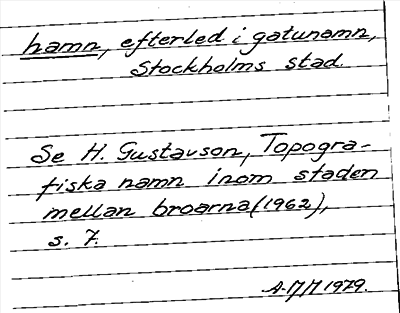 hamn, efterled i gatunamn,
Stockholms stad.
Se H. Gustavson, Topogra-
fiska namn inom staden
mellan broarna (1962),
s. 7.
1979.